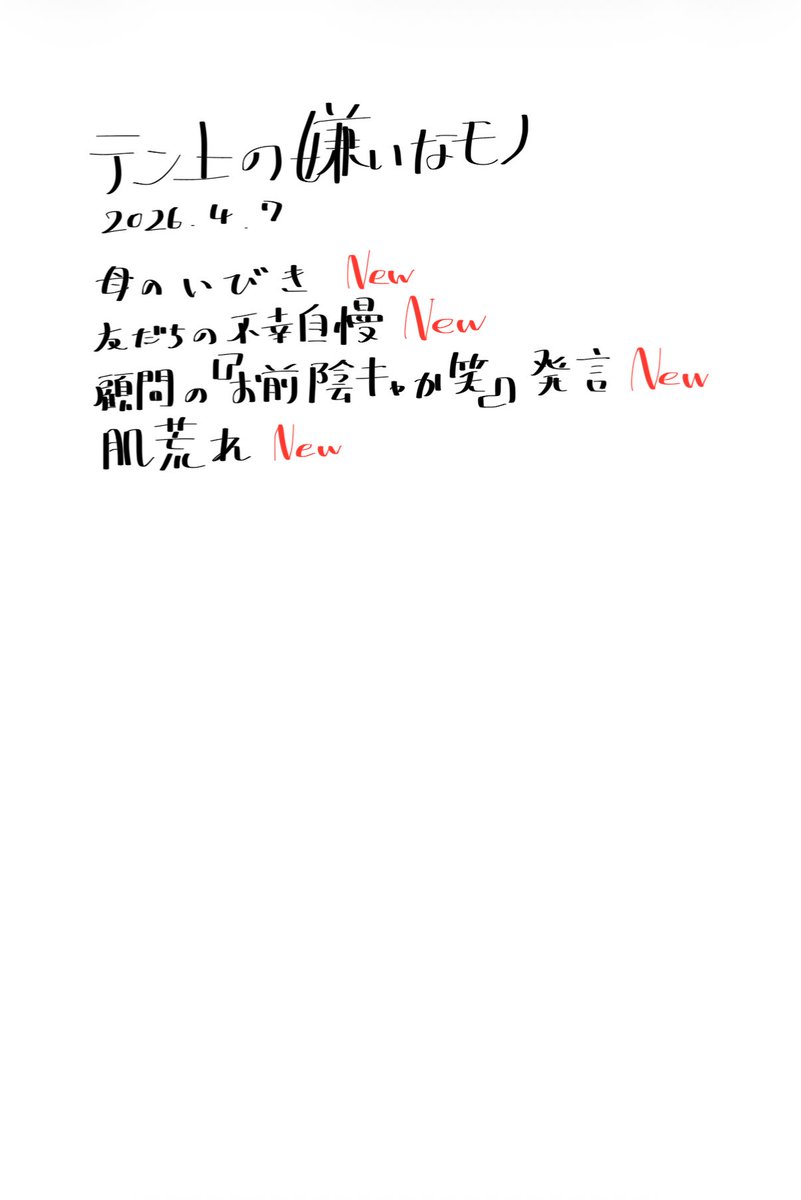 テン上の嫌いなモノ
2026.4.7
母のいびき New
友だちの不幸自慢 New
顧問の『お前陰キャか笑』発言 New
肌荒れ New